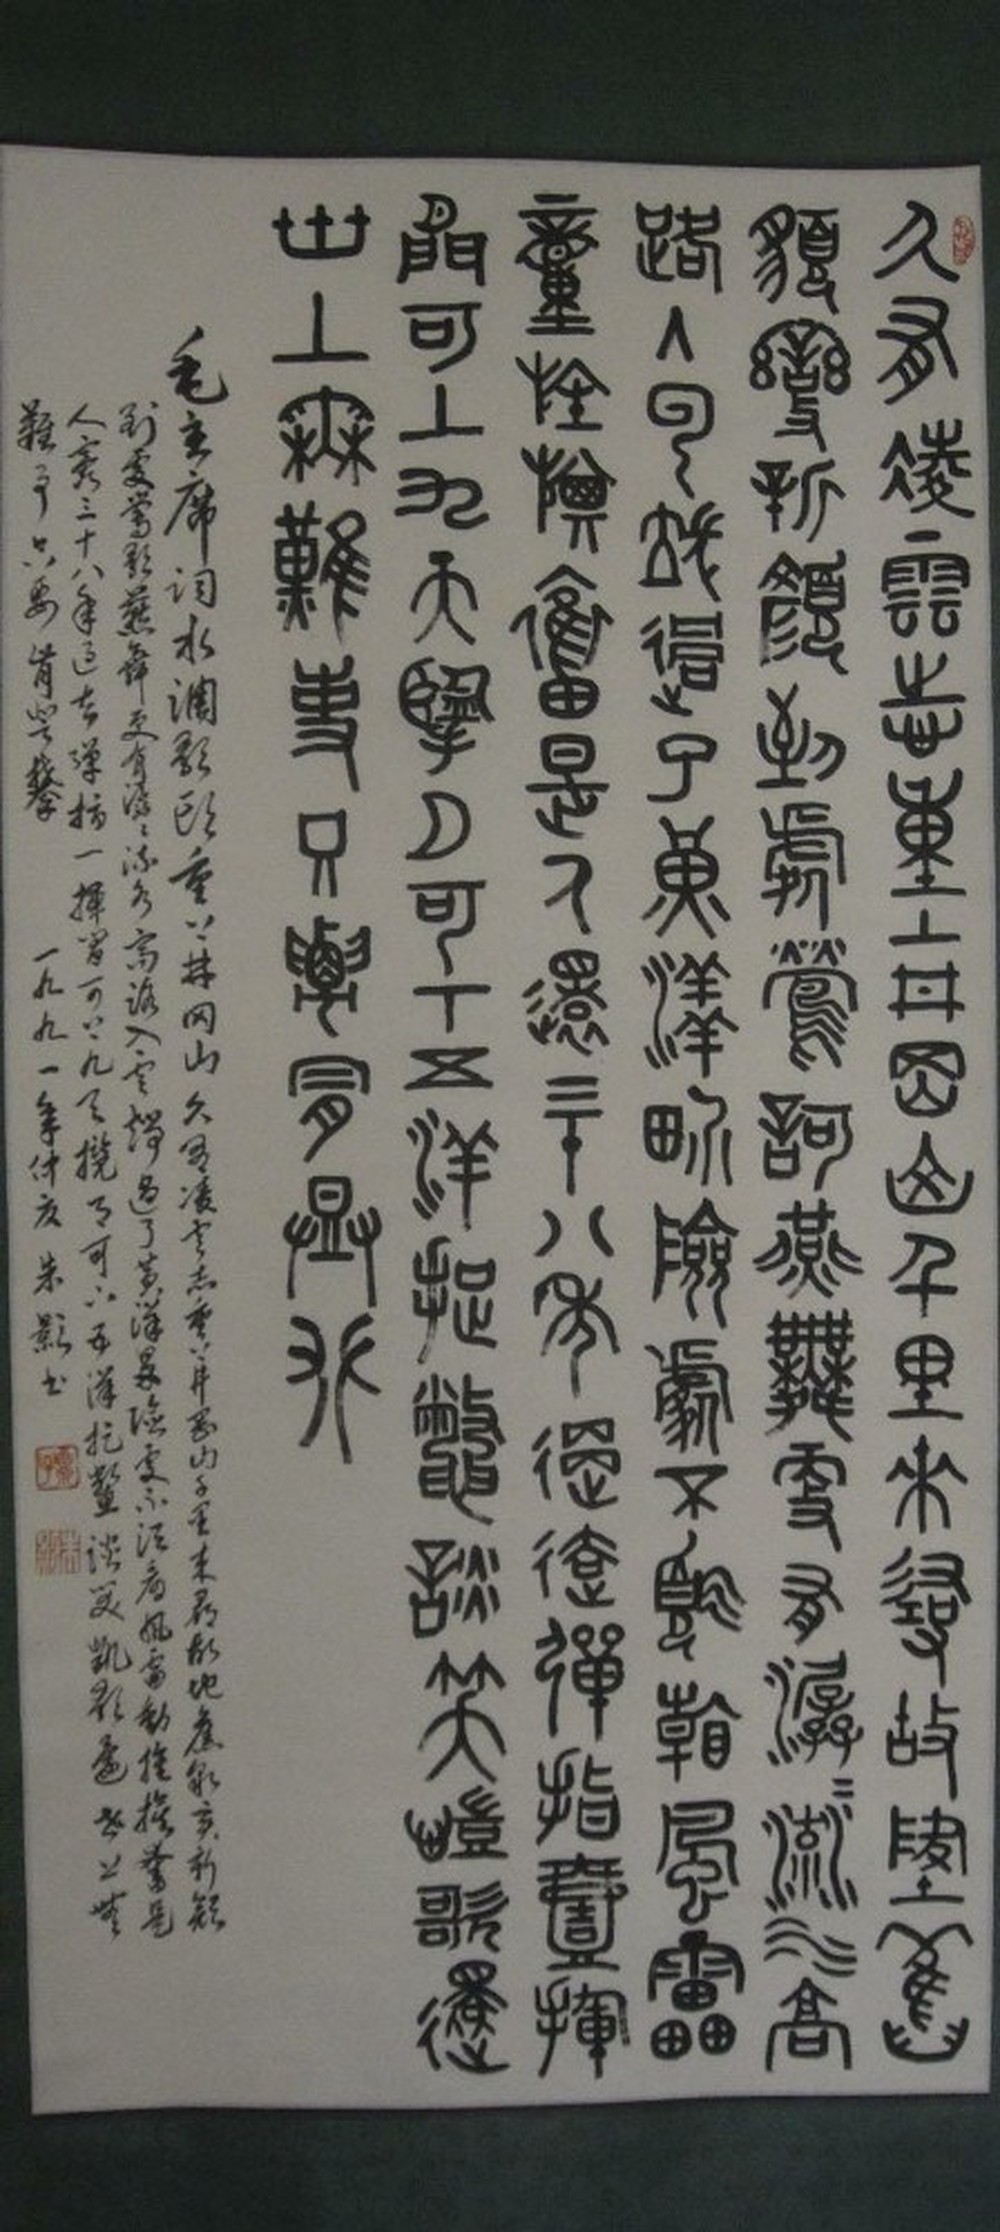 久有凌雲志重上井岡山千里來尋故地舊
貌變新顏到處鶯歌燕舞更有潺〻流水高
路入雲端過了黃洋界險處不須看風雷
動旌旗奮是人寰三十八年過去彈指一揮
間可上九天攬月可下五洋捉鱉談笑凱歌還
世上無難事只要肯登攀
毛主席词水调歌头重上井冈山 久有凌云志重上井冈山千里来寻故地旧貌变新颜
到处莺歌燕舞更有潺〻流水高路入云端过了黄洋界险处不须看风雷动旌旗奋是
人寰三十八年过去弹指一挥间可上九天揽月可下五洋捉鳖谈笑凯歌还世上无
难事只要肯登攀 一九九一年仲夏 朱影书